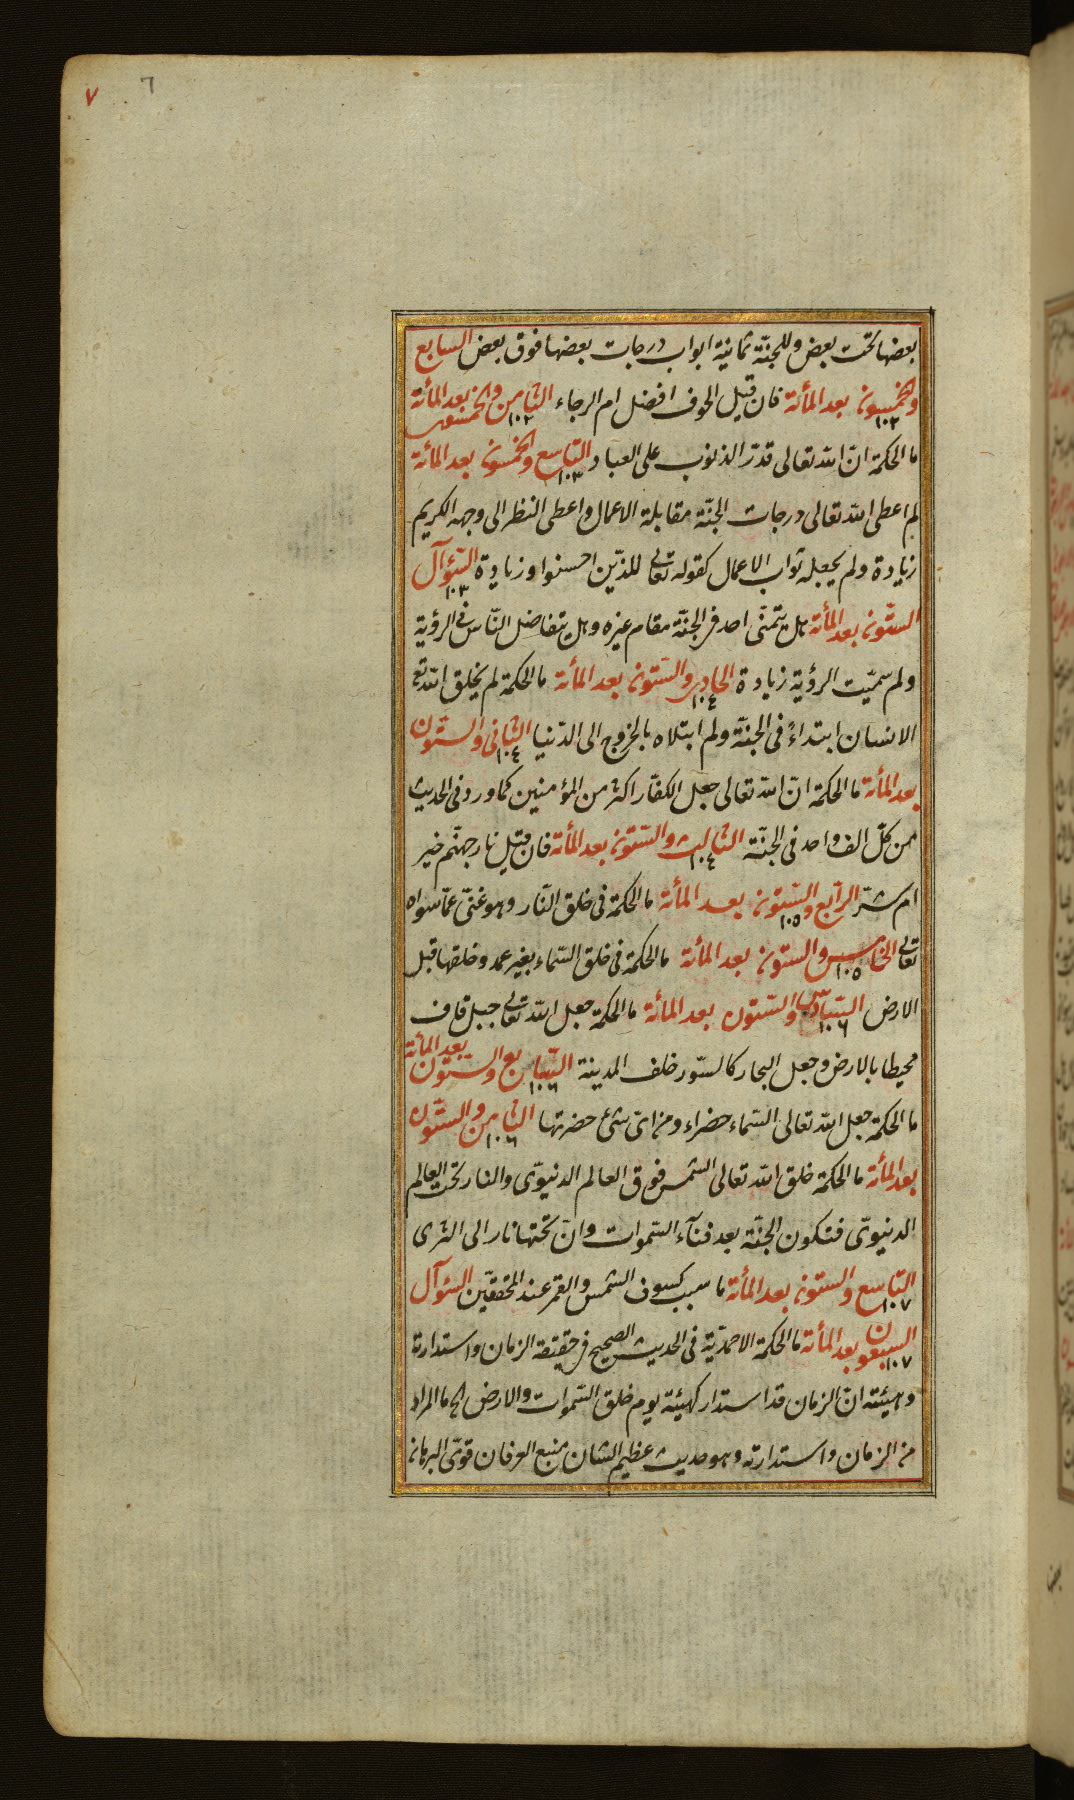 ٧ ٦
بعضها تحت بعض وللجنّة ثمانية ابواب درجات بعضها فوق بعض السابع
والخمسون بعد المأئة ١٠٢ فان قيل الخوف افضل ام الرجاء الثامن والخمسون بعد المأئة ١٠٢
ما الحكمة انّ الله تعالى قدّر الذنوب على العباد التاسع والخمسون بعد المأئة ١٠٣
لم اعطى الله تعالى درجات الجنّة مقابلة الاعمال واعطى النظر الى وجهه الكريم
زيادة ولم يجعله ثواب الاعمال كقوله تعالى للذين احسنوا وزيادة السّؤآل ١٠٣
الستّون بعد المأئة هل يتمنّى احد فى الجنّة مقام غيره وهل يتفاضل النّاس فى الرؤية
ولم سمّيت الرؤية زيادة الحادى والستّون بعد المأئة ١٠٤ ما الحكمة لم يخلق الله تع
الانسان ابتداءً فى الجنّة ولم ابتلاه بالخروج الى الدّنيا الثانى والستّون ١٠٤
بعد المأئة ما الحكمة انّ الله تعالى جعل الكفّار اكثر من المؤمنين كما ورد فى الحديث
من كلّ الف واحد فى الجنّة الثالث والستّون بعد المأئة ١٠٤ فان قيل نار جهنّم خير
ام شرّ الرّابع والستّون بعد المأئة ١٠٥ ما الحكمة فى خلق النّار وهو غنىّ عمّا سواه
تعالى الخامس والستون بعد المأئة ١٠٥ ما الحكمة فى خلق السّماء بغير عمد وخلقها قبل
الارض السّادس والستّون بعد المائة ١٠٦ ما الحكمة جعل الله تعالى جبل قاف
محيطا بالارض وجعل البحار كالسّور خلف المدينة السّابع والستّون بعد المأئة ١٠٦
ما الحكمة جعل الله تعالى السّماء خضراء ومن اىّ شئ خضرتها الثامن والستّون ١٠٦
بعد المأئة ما الحكمة خلق الله تعالى الشمس فوق العالم الدنيوّى والنار تحت العالم
الدنيوّى فتكون الجنّة بعد فنآء السّموات وانّ تحتها نار الى الثرى
التاسع والستون بعد المأئة ١٠٧ ما سبب كسوف الشمس والقمر عند المحققّين السّؤآل
السبعون بعد المأئة ١٠٧ ما الحكمة الاحمديّة فى الحديث الصحيح فى حقيقة الزمان واستدارة
وهيئته انّ الزمان قد استدار كهيئة يوم خلق السّموات والارض الخ ما المراد
من الزمان واستدارته وهو حديث عظيم الشان منبع العرفان قوىّ البرهان